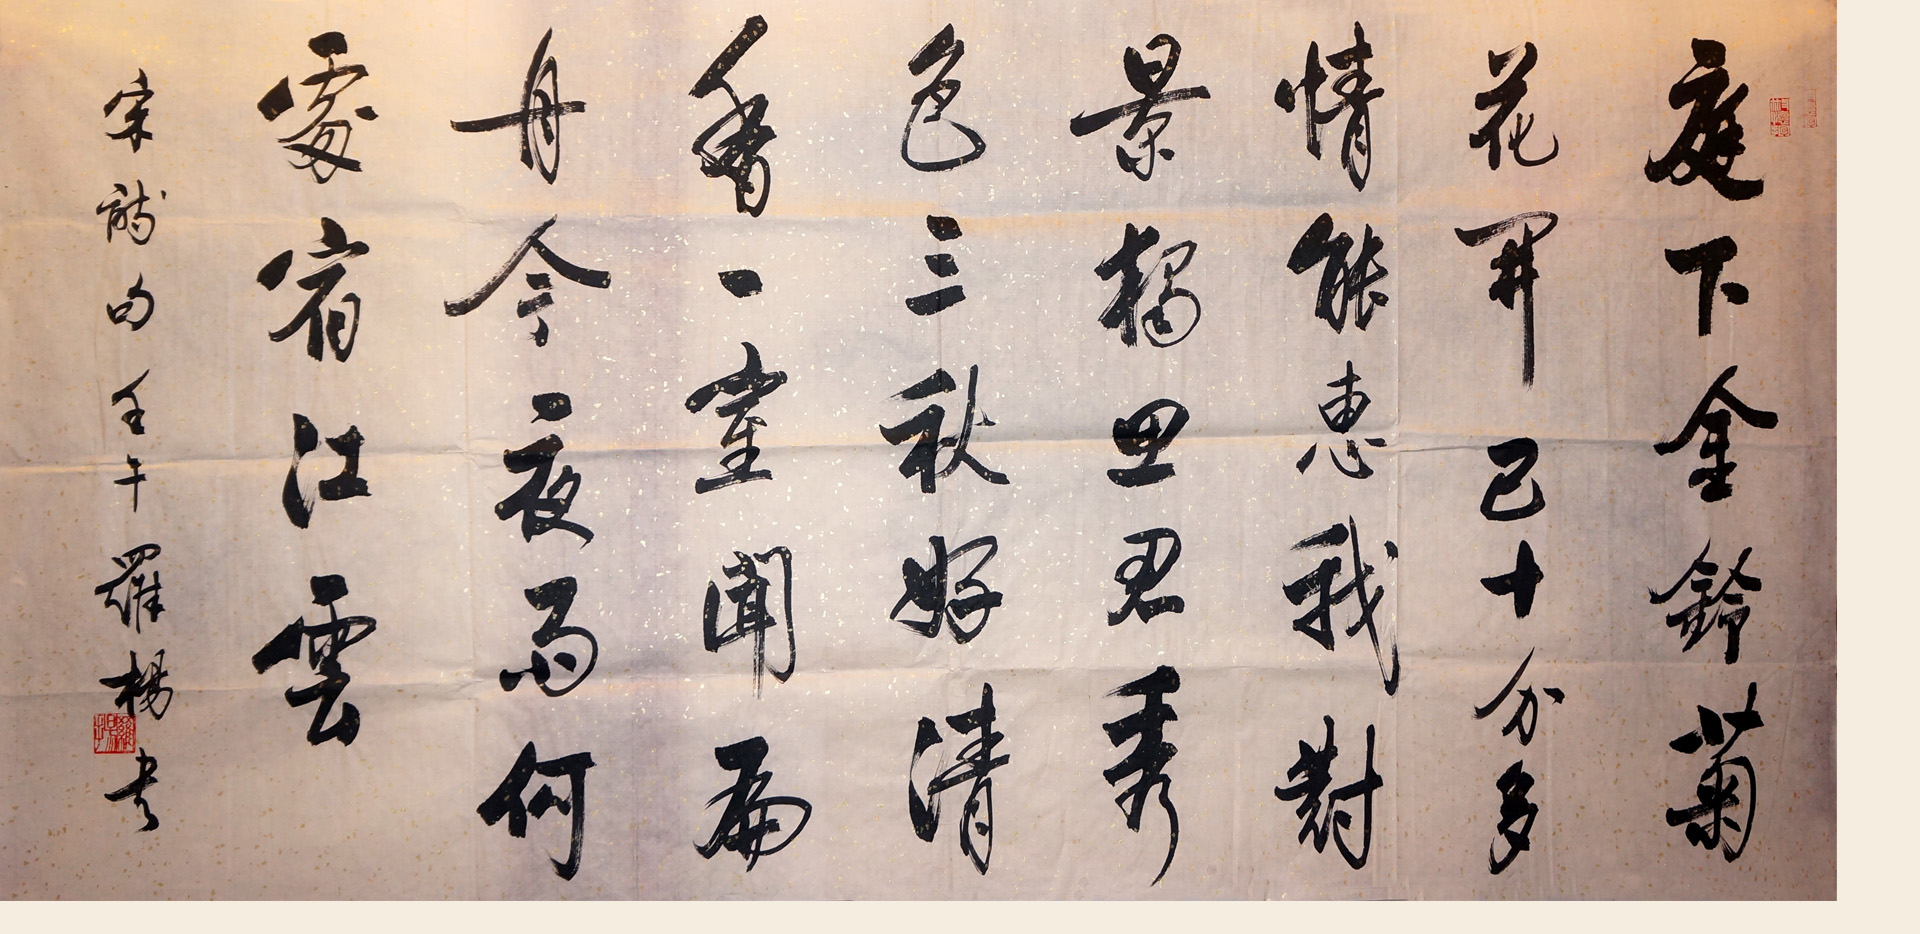 庭下金鈴菊
花開已十分多
情能惠我對
景獨思君秀
色三秋好清
香一室聞扁
舟今夜雨何
處宿江雲
宋詩句壬午羅楊书